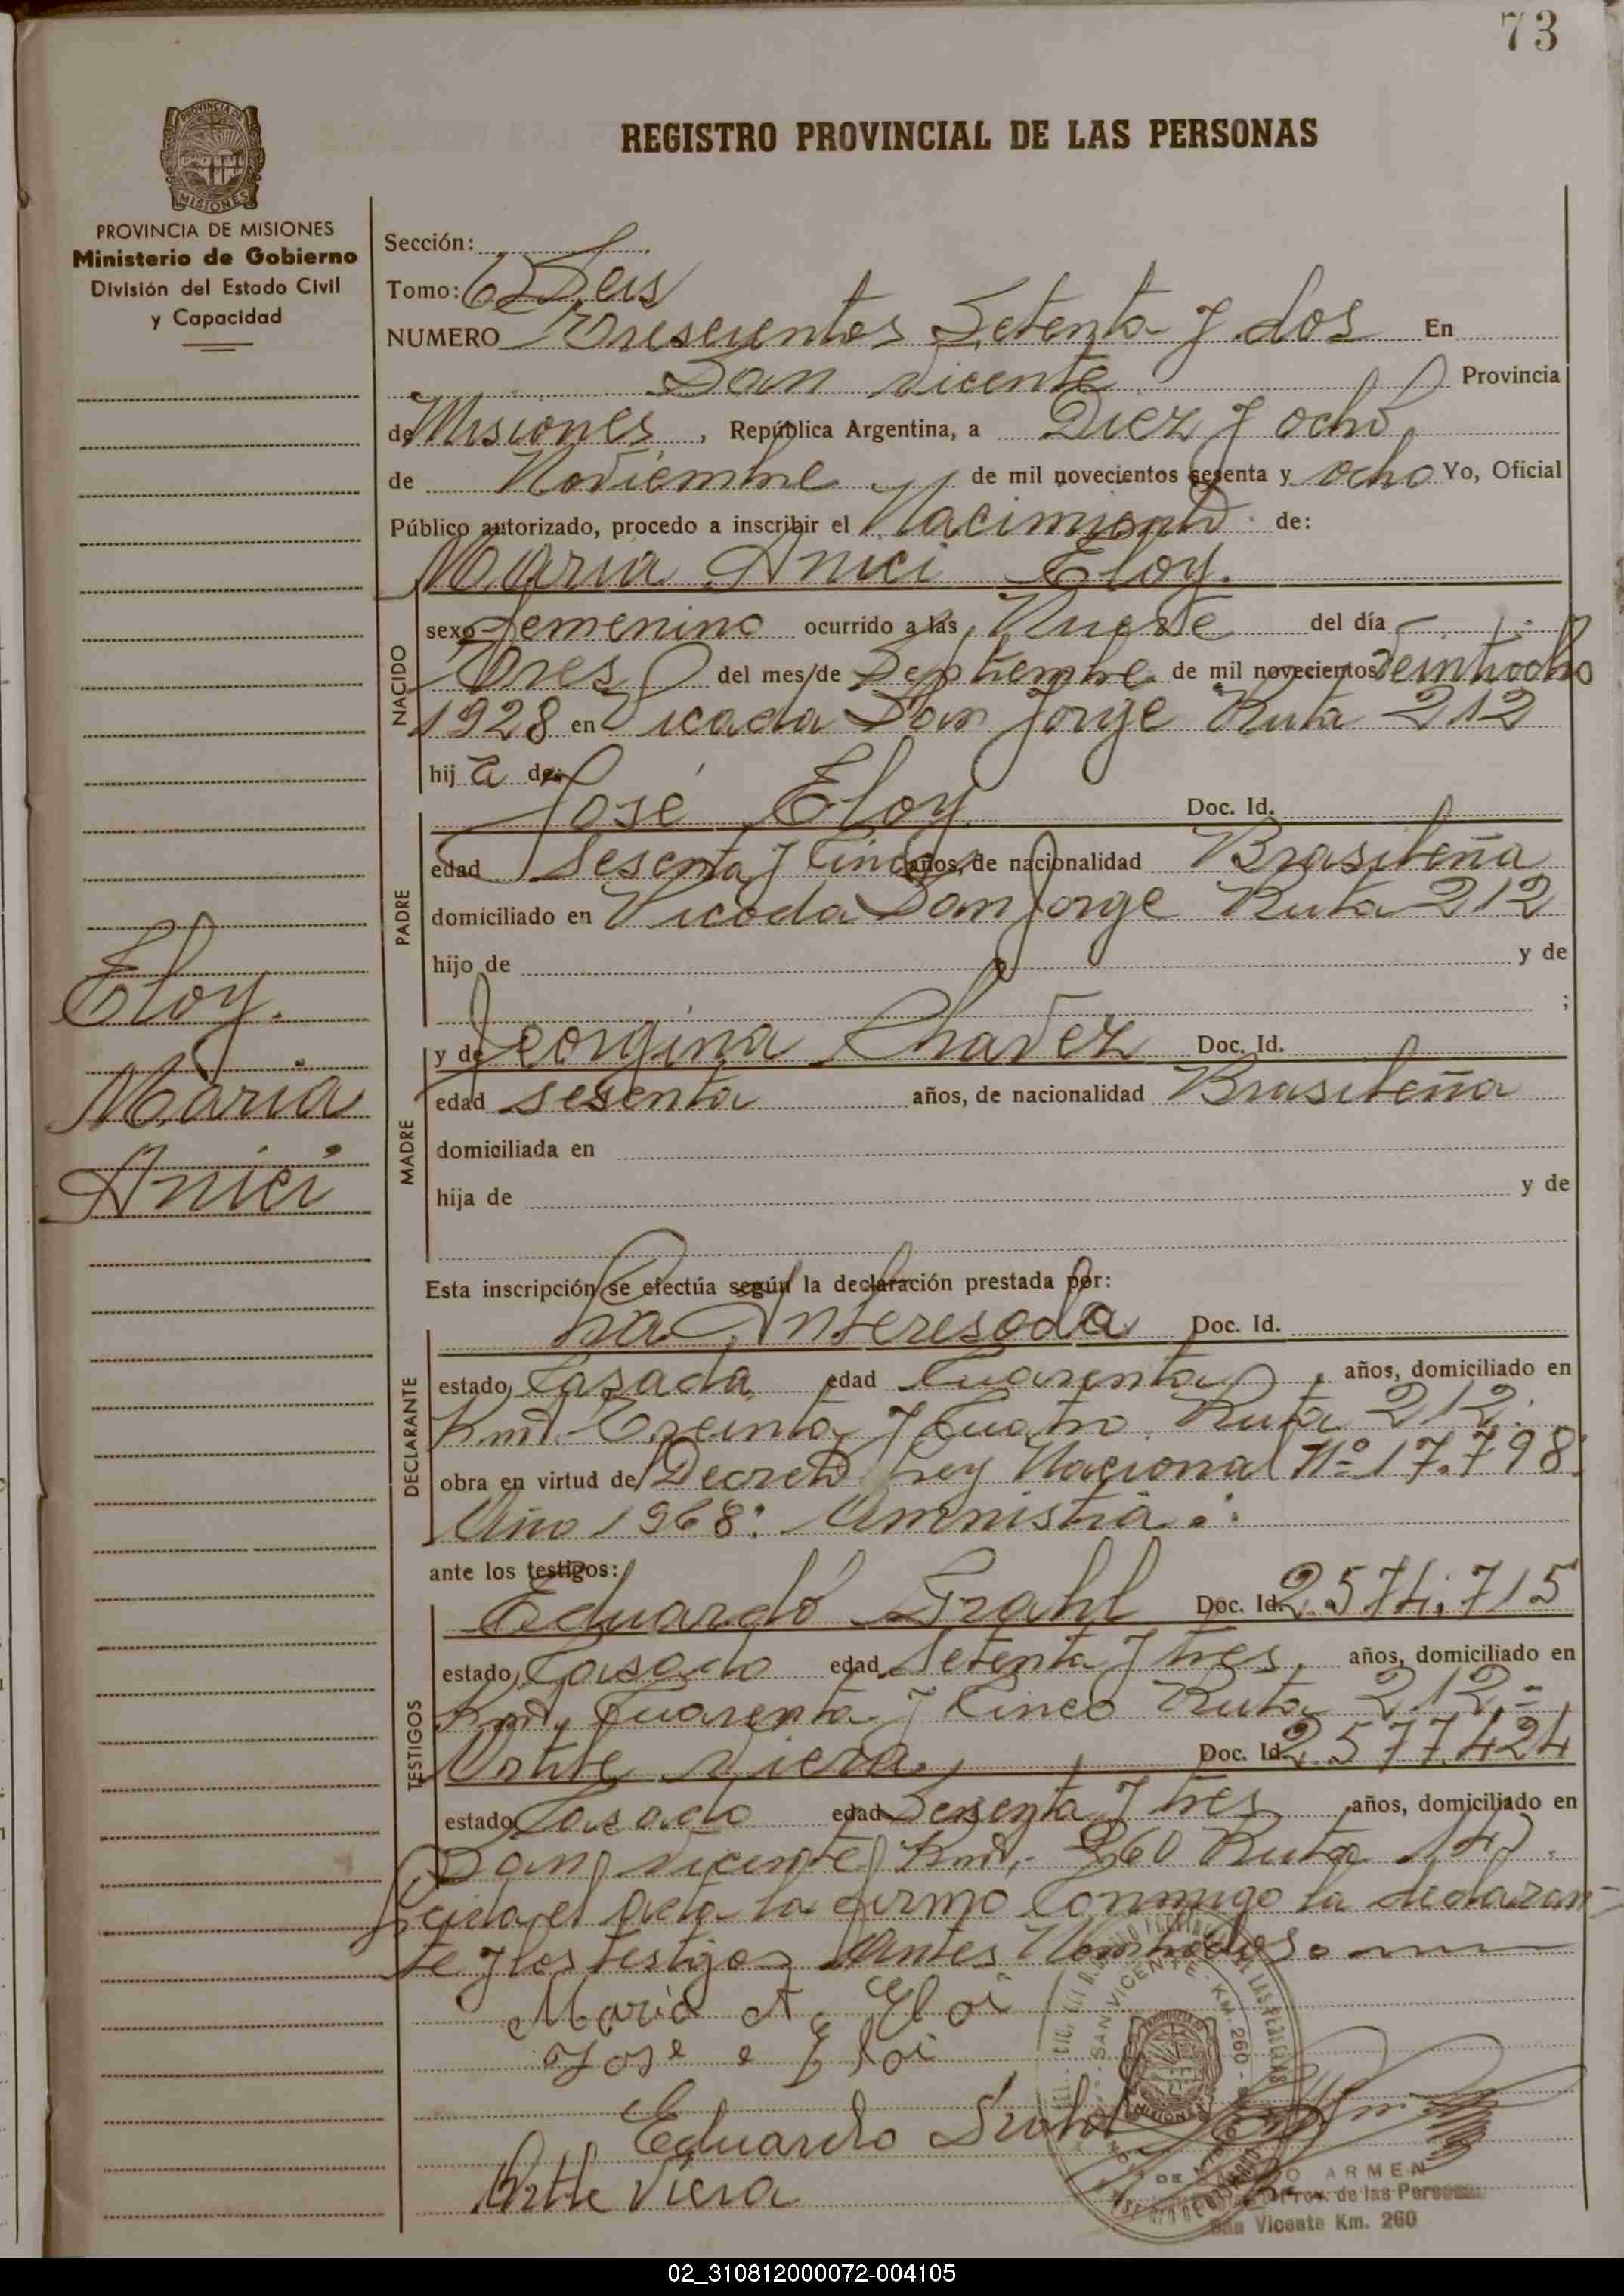 73
REGISTRO PROVINCIAL DE LAS PERSONAS
PROVINCIA DE MISIONES
Ministerio de Gobierno
División del Estado Civil
y Capacidad
Eloy.
Maria
Anici
Sección:
Tomo: 6 Seis
NUMERO Trescientos Setenta y dos En
San Vicente Provincia
de Misiones, República Argentina, a Diez y ocho
de Noviembre de mil novecientos sesenta y ocho Yo, Oficial
Público autorizado, procedo a inscribir el Nacimiento de:
Maria Anici Eloy.
NACIDO
sexo femenino ocurrido a las Nueve del día
Tres del mes de Septiembre de mil novecientos Veintiocho
1928 en Picada San Jorge Ruta 212
hij a de:
PADRE
José Eloy Doc. Id.
edad Sesenta y Cinco años, de nacionalidad Brasileña
domiciliado en Picada San Jorge Ruta 212
hijo de y de
;
MADRE
y de Jeorgina Chavez Doc. Id.
edad sesenta años, de nacionalidad Brasileña
domiciliada en
hija de y de
Esta inscripción se efectúa según la declaración prestada por:
DECLARANTE
La Interesada Doc. Id.
estado Casada edad Cuarenta años, domiciliado en
Km. Treinta y Cuatro Ruta 212.
obra en virtud de Decreto Ley Nacional Nº 17.798.
Año 1968: Amnistia.:
ante los testigos:
TESTIGOS
Eduardo Grahl Doc. Id. 2.574.715
estado Casado edad Setenta y tres años, domiciliado en
Km. Cuarenta y Cinco Ruta 212.=
Viera Doc. Id. 2.577.424
estado Casado edad Sesenta y tres años, domiciliado en
San Vicente Km. 260 Ruta 14.
Leida el acta la firmo Conmigo la declaran-
te y los testigos Antes Nombrados.
Maria A. Eloi
Jose e Eloi
Eduardo Grahl
Viera
SAN VICENTE - KM. 260
MISIONES
ARMEN
Prov. de las Personas
San Vicente Km. 260
02_310812000072-004105